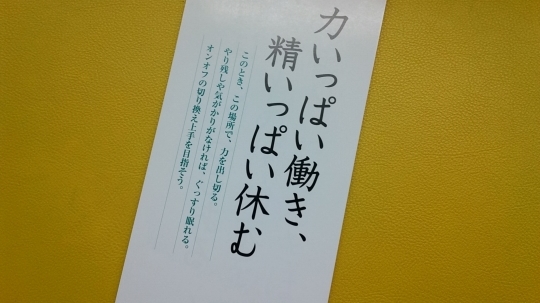 力いっぱい働き、
精いっぱい休む
このとき、この場所で、力を出し切る。
やり残しや気がかりがなければ、ぐっすり眠れる。
オンオフの切り換え上手を目指そう。